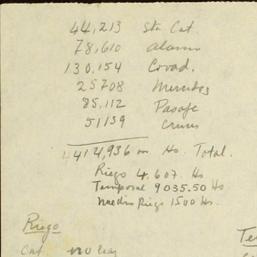 44,213 Sta Cat.
78,610 Alamo
130,154 Covad.
25708 Mercedes
85,112 Pasaje
51139 Cruces
414,936 m Hs. Total.
Riego 4.607. Hs
Temporal 9035.50 Hs
Medio Riego 1500 Hs.
Riego
Cat.
Te